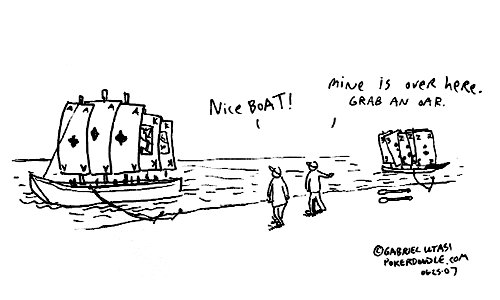 Nice BOAT!
mine is over here.
GRAB AN OAR.
A A A
K
K
©GABRIEL UTASI
POKERDOODLE.COM
06·25·07